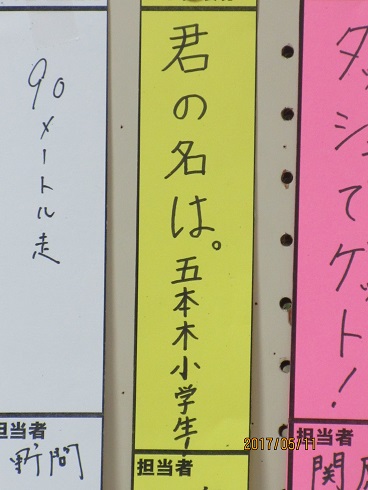 90メートル走
担当者
野間
君の名は。五本木小学生!
担当者
ダッシュでゲット!
担当者
関
2017/05/11